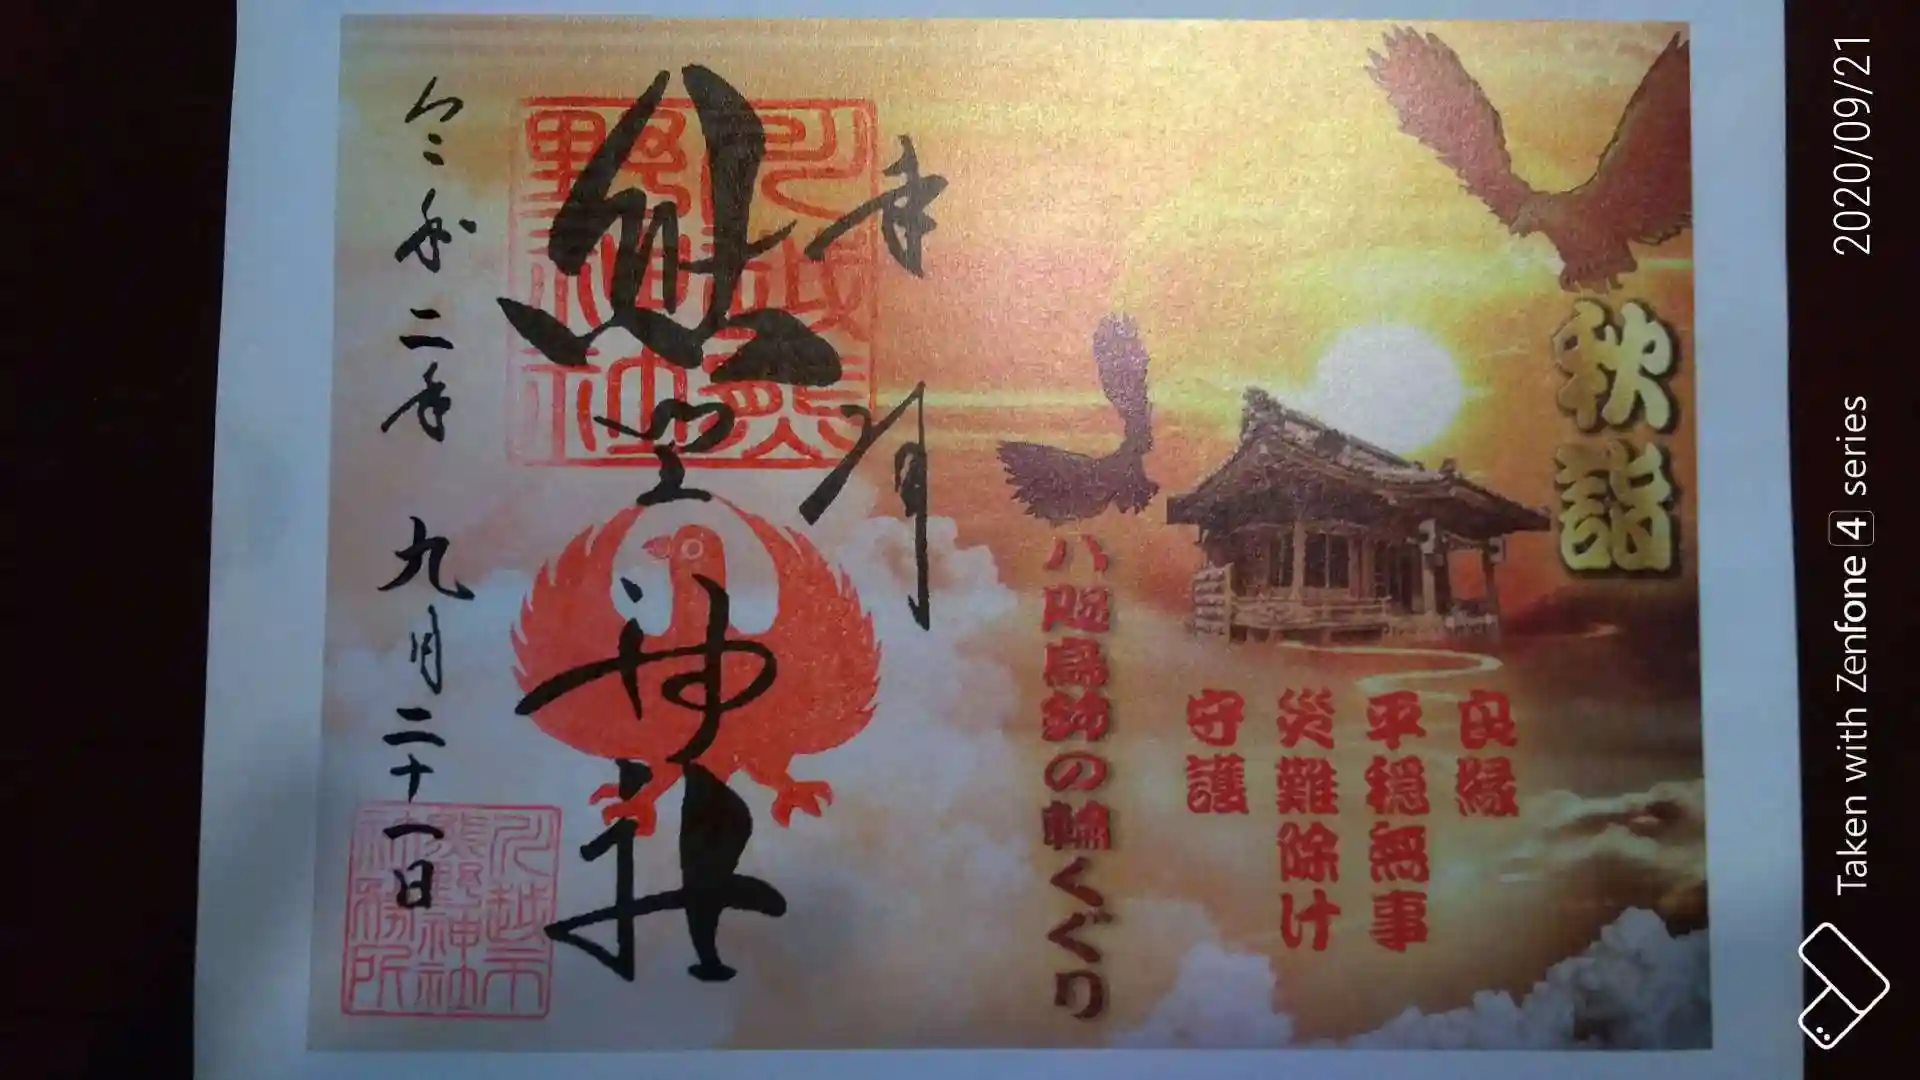 秋詣
良縁
平穏無事
災難除け
守護
八咫烏鈴の輪くぐり
奉拝
川越熊野神社
熊野神社
令和二年 九月二十一日
川越市熊野神社社務所
2020/09/21
Taken with Zenfone 4 series